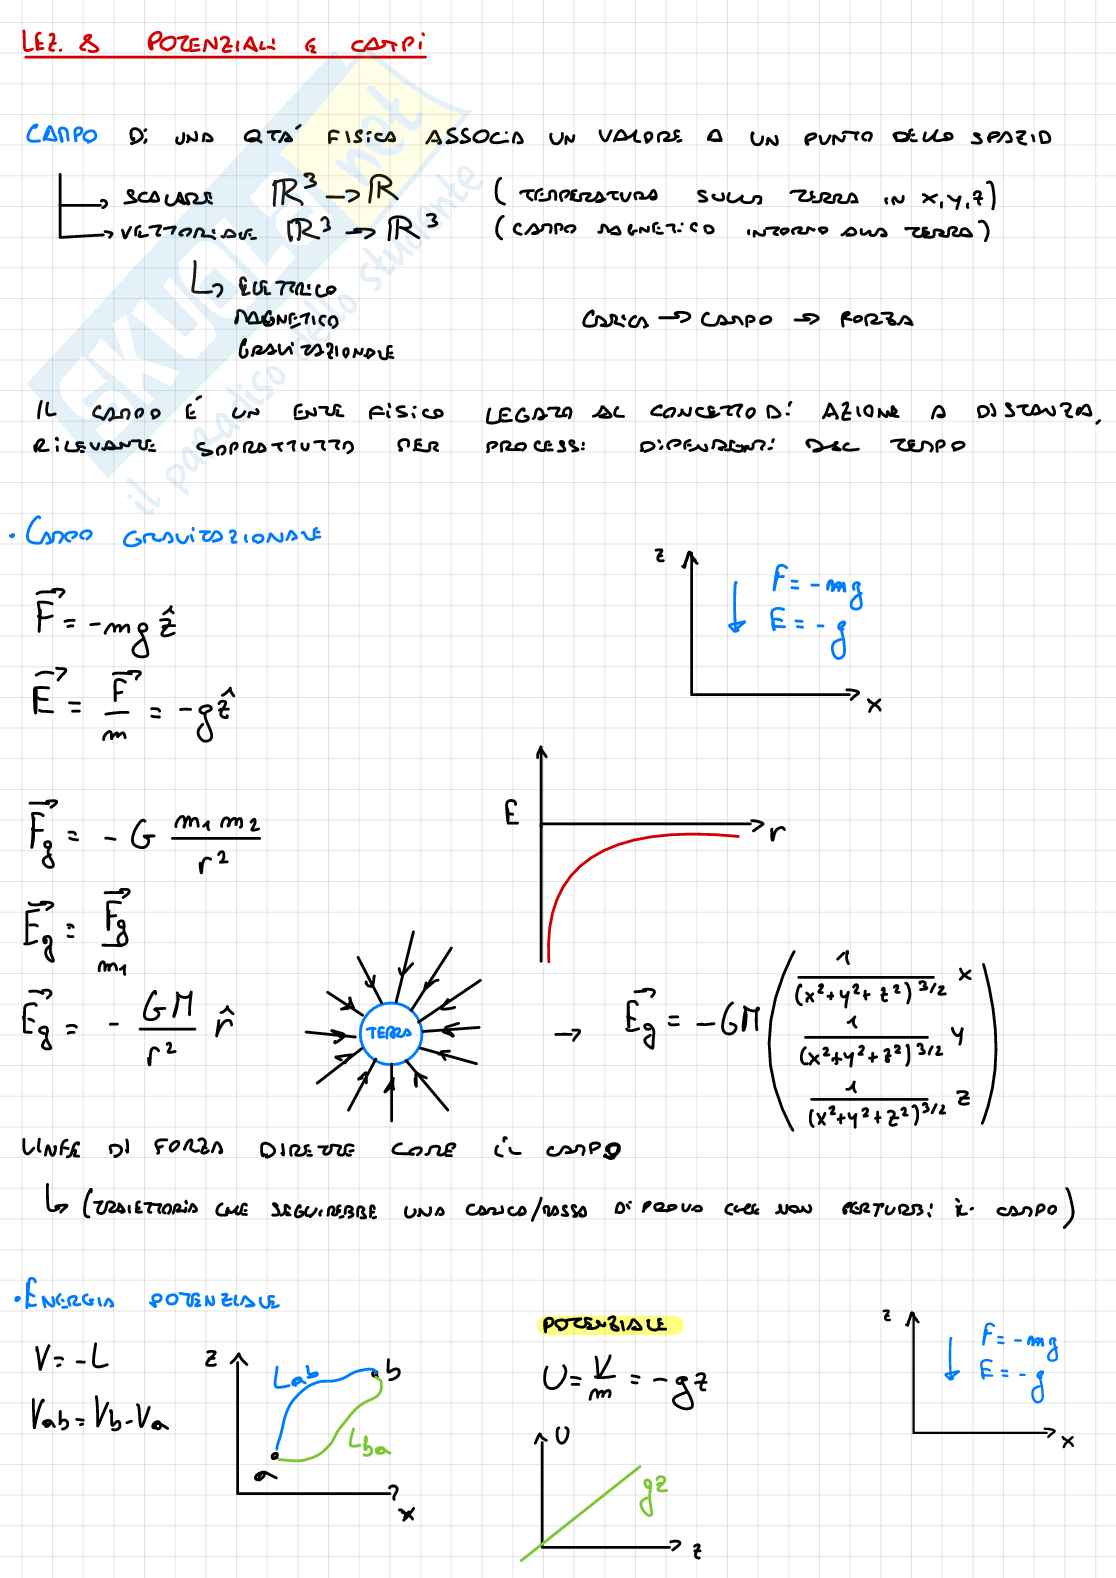 LEZ. 8 POTENZIALI E CAMPI
CAMPO DI UNA QTA' FISICA ASSOCIA UN VALORE A UN PUNTO DELLO SPAZIO
SCALARE ℝ³ → ℝ (TEMPERATURA SULLA TERRA IN x,y,z)
VETTORIALE ℝ³ → ℝ³ (CAMPO MAGNETICO INTORNO ALLA TERRA)
↳ ELETTRICO
MAGNETICO CARICA → CAMPO → FORZA
GRAVITAZIONALE
IL CAMPO É UN ENTE FISICO LEGATO AL CONCETTO DI AZIONE A DISTANZA,
RILEVANTE SOPRATTUTTO PER PROCESSI DIPENDENTI DAL TEMPO
• CAMPO GRAVITAZIONALE
z F = -mg
E = -g
x
F⃗ = -mg ẑ
E⃗ = F⃗/m = -g ẑ
E r
F⃗g = -G m₁m₂/r²
E⃗g = F⃗g/m₁
E⃗g = -GM/r² r̂
TERRA
→ E⃗g = -GM ( 1/(x²+y²+z²)^3/2 x
1/(x²+y²+z²)^3/2 y
1/(x²+y²+z²)^3/2 z )
LINEE DI FORZA DIRETTE COME IL CAMPO
↳ (TRAIETTORIA CHE SEGUIREBBE UNA CARICA/MASSA DI PROVA CHE NON PERTURBI IL CAMPO)
• ENERGIA POTENZIALE
V = -L
Vab = Vb - Va
z Lab b
Lba
a
x
POTENZIALE
U = V/m = -gz
U
gz
z
z F = -mg
E = -g
x
SKUOLA.not
il paradiso dello studente